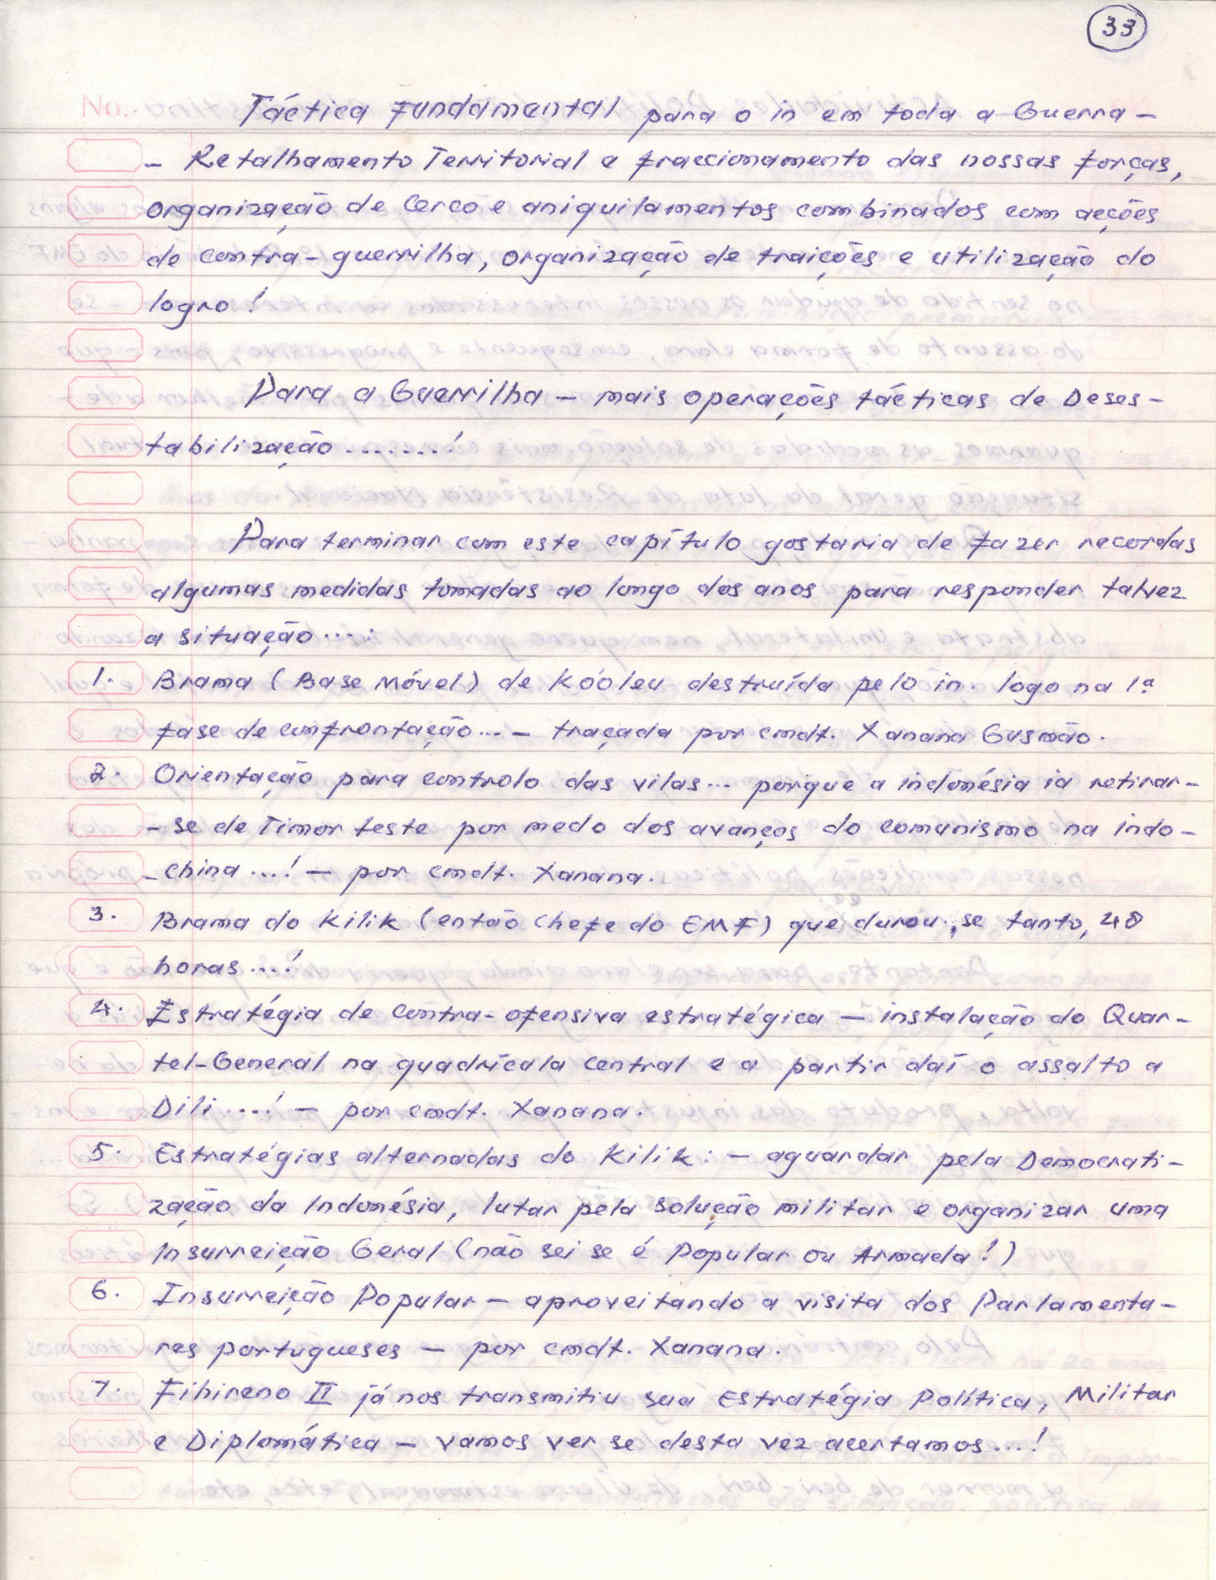 33
No.
Táctica Fundamental para o in em toda a Guerra -
- Retalhamento Territorial e fraccionamento das nossas forças,
organização de Cerco e aniquilamentos combinados com acções
de contra-guerrilha, organização de traições e utilização do
logro!
Para a Guerrilha - mais operações tácticas de Deses-
tabilização ........!
Para terminar com este capítulo gostaria de fazer recordas
algumas medidas tomadas ao longo dos anos para responder talvez
a situação ....
1. Brama (Base Móvel) de Kóoleu destruída pelo in. logo na 1ª
fase de confrontação... - traçada por cmdt. Xanana Gusmão.
2. Orientação para controlo das vilas... porque a indonésia ia retirar-
- se de Timor Leste por medo dos avanços do comunismo na indo-
- china ...! - por cmdt. Xanana.
3. Brama do Kilik (então Chefe do EMF) que durou, se tanto, 48
horas ...!
4. Estratégia de Contra-ofensiva estratégica - instalação do Quar-
tel-General na quadrícula central e a partir daí o assalto a
Dili ...! - por cmdt. Xanana.
5. Estratégias alternadas do Kilik: - aguardar pela Democrati-
zação da Indonésia, lutar pela solução militar e organizar uma
Insurreição Geral (não sei se é Popular ou Armada!)
6. Insurreição Popular - aproveitando a visita dos Parlamenta-
res portugueses - por cmdt. Xanana.
7. Fihireno II já nos transmitiu sua Estratégia Política, Militar
e Diplomática - vamos ver se desta vez acertamos...!